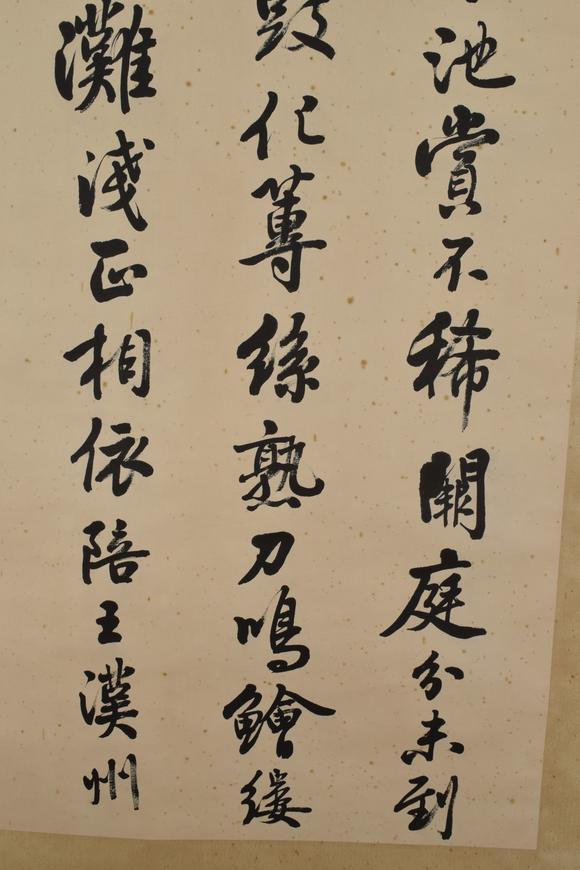 池賞不稀闕庭分未到
豉化蓴絲熟刀鳴鱠縷
灘淺正相依陪王漢州